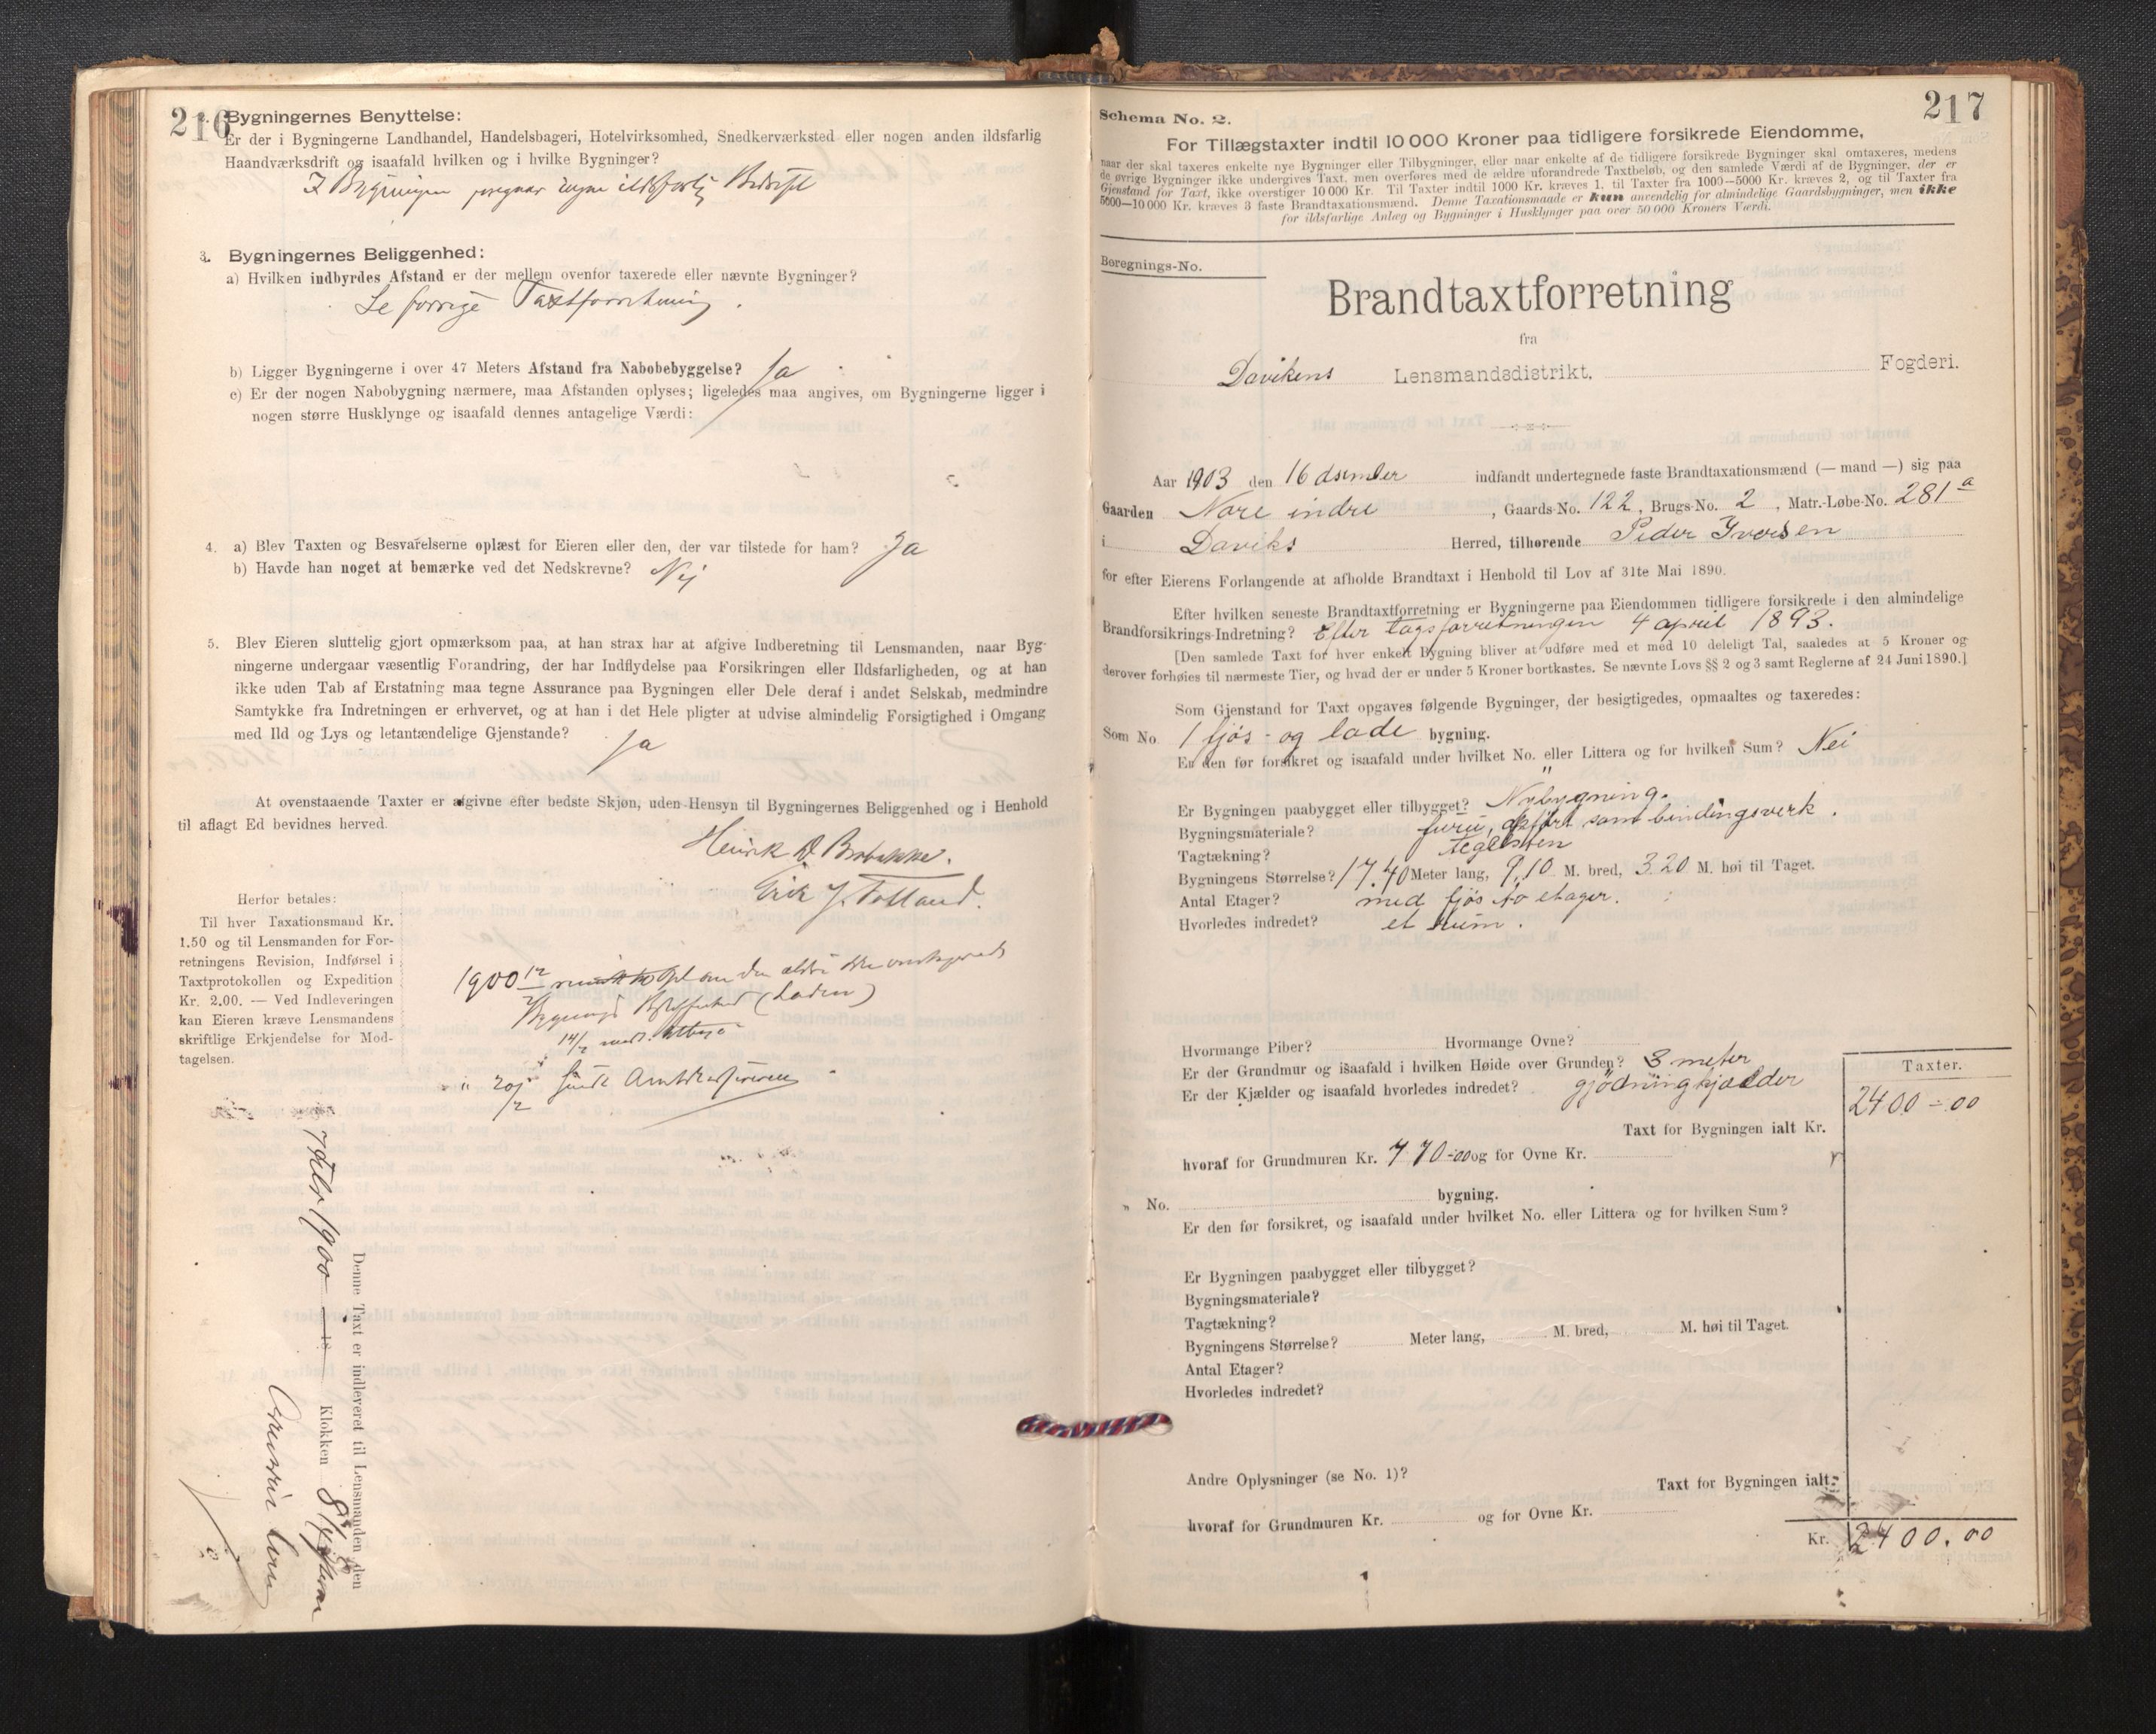 216
Bygningernes Benyttelse:
Er der i Bygningerne Landhandel, Handelsbageri, Hotelvirksomhed, Snedkerværksted eller nogen anden ildsfarlig
Haandværksdrift og isaafald hvilken og i hvilke Bygninger?
I Bygningen ildsfarlig Bedrift
3. Bygningernes Beliggenhed:
a) Hvilken indbyrdes Afstand er der mellem ovenfor taxerede eller nævnte Bygninger?
Se forrige Taxtforretning.
b) Ligger Bygningerne i over 47 Meters Afstand fra Nabobebyggelse? Ja
c) Er der nogen Nabobygning nærmere, maa Afstanden oplyses; ligeledes maa angives, om Bygningerne ligger i
nogen større Husklynge og isaafald dennes antagelige Værdi:
4. a) Blev Taxten og Besvarelserne oplæst for Eieren eller den, der var tilstede for ham? Ja
b) Havde han noget at bemærke ved det Nedskrevne? Nej
5. Blev Eieren sluttelig gjort opmærksom paa, at han strax har at afgive Indberetning til Lensmanden, naar Byg-
ningerne undergaar væsentlig Forandring, der har Indflydelse paa Forsikringen eller Ildsfarligheden, og at han
ikke uden Tab af Erstatning maa tegne Assurance paa Bygningen eller Dele deraf i andet Selskab, medmindre
Samtykke fra Indretningen er erhvervet, og at han i det Hele pligter at udvise almindelig Forsigtighed i Omgang
med Ild og Lys og letantændelige Gjenstande? Ja
At ovenstaaende Taxter er afgivne efter bedste Skjøn, uden Hensyn til Bygningernes Beliggenhed og i Henhold
til aflagt Ed bevidnes herved.
Henrik D
Erik J. Totland.
Herfor betales:
Til hver Taxationsmand Kr.
1.50 og til Lensmanden for For-
retningens Revision, Indførsel i
Taxtprotokollen og Expedition
Kr. 2.00. — Ved Indleveringen
kan Eieren kræve Lensmandens
skriftlige Erkjendelse for Mod-
tagelsen.
1900
(Laden)
sendt
Denne Taxt er indleveret til Lensmanden den
7 1900 18 Klokken 8
217
Schema No. 2.
For Tillægstaxter indtil 10 000 Kroner paa tidligere forsikrede Eiendomme,
naar der skal taxeres enkelte nye Bygninger eller Tilbygninger, eller naar enkelte af de tidligere forsikrede Bygninger skal omtaxeres, medens
de øvrige Bygninger ikke undergives Taxt, men overføres med de ældre uforandrede Taxtbeløb, og den samlede Værdi af de Bygninger, der er
Gjenstand for Taxt, ikke overstiger 10 000 Kr. Til Taxter indtil 1000 Kr. kræves 1, til Taxter fra 1000—5000 Kr. kræves 2, og til Taxter fra
5000—10 000 Kr. kræves 3 faste Brandtaxationsmænd. Denne Taxationsmaade er kun anvendelig for almindelige Gaardsbygninger, men ikke
for ildsfarlige Anlæg og Bygninger i Husklynger paa over 50 000 Kroners Værdi.
Beregnings-No.
Brandtaxtforretning
fra
Davikens Lensmandsdistrikt, Fogderi.
Aar 1903 den 16 desember indfandt undertegnede faste Brandtaxationsmænd (— mand —) sig paa
Gaarden Nore indre, Gaards-No. 122, Brugs-No. 2, Matr.-Løbe-No. 281 a
i Daviks Herred, tilhørende Peder Iversen
for efter Eierens Forlangende at afholde Brandtaxt i Henhold til Lov af 31te Mai 1890.
Efter hvilken seneste Brandtaxtforretning er Bygningerne paa Eiendommen tidligere forsikrede i den almindelige
Brandforsikrings-Indretning? Efter tagsforretningen 4 april 1893.
[Den samlede Taxt for hver enkelt Bygning bliver at udføre med et med 10 deleligt Tal, saaledes at 5 Kroner og
derover forhøies til nærmeste Tier, og hvad der er under 5 Kroner bortkastes. Se nævnte Lovs §§ 2 og 3 samt Reglerne af 24 Juni 1890.]
Som Gjenstand for Taxt opgaves følgende Bygninger, der besigtigedes, opmaaltes og taxeredes:
Som No. 1 fjøs - og lade bygning.
Er den før forsikret og isaafald under hvilket No. eller Littera og for hvilken Sum? Nei
Er Bygningen paabygget eller tilbygget? Nybygning.
Bygningsmateriale? furu, opført som bindingsverk.
Tagtækning? teglsten
Bygningens Størrelse? 17.40 Meter lang, 9,10 M. bred, 3.20 M. høi til Taget.
Antal Etager? med fjøs to etager.
Hvorledes indredet? et rum.
Hvormange Piber? Hvormange Ovne?
Er der Grundmur og isaafald i hvilken Høide over Grunden? 3 meter
Er der Kjælder og isaafald hvorledes indredet? gjødningkjælder
Taxter.
2400-00
Taxt for Bygningen ialt Kr.
hvoraf for Grundmuren Kr. 770-00 og for Ovne Kr.
" No. bygning.
Er den før forsikret, og isaafald under hvilket No. eller Littera og for hvilken Sum?
Er Bygningen paabygget eller tilbygget?
Bygningsmateriale?
Tagtækning?
Bygningens Størrelse? Meter lang, M. bred, M. høi til Taget.
Antal Etager?
Hvorledes indredet?
Andre Oplysninger (se No. 1)?
Taxt for Bygningen ialt:
hvoraf for Grundmuren Kr. og for Ovne Kr.
Kr. 2400.00